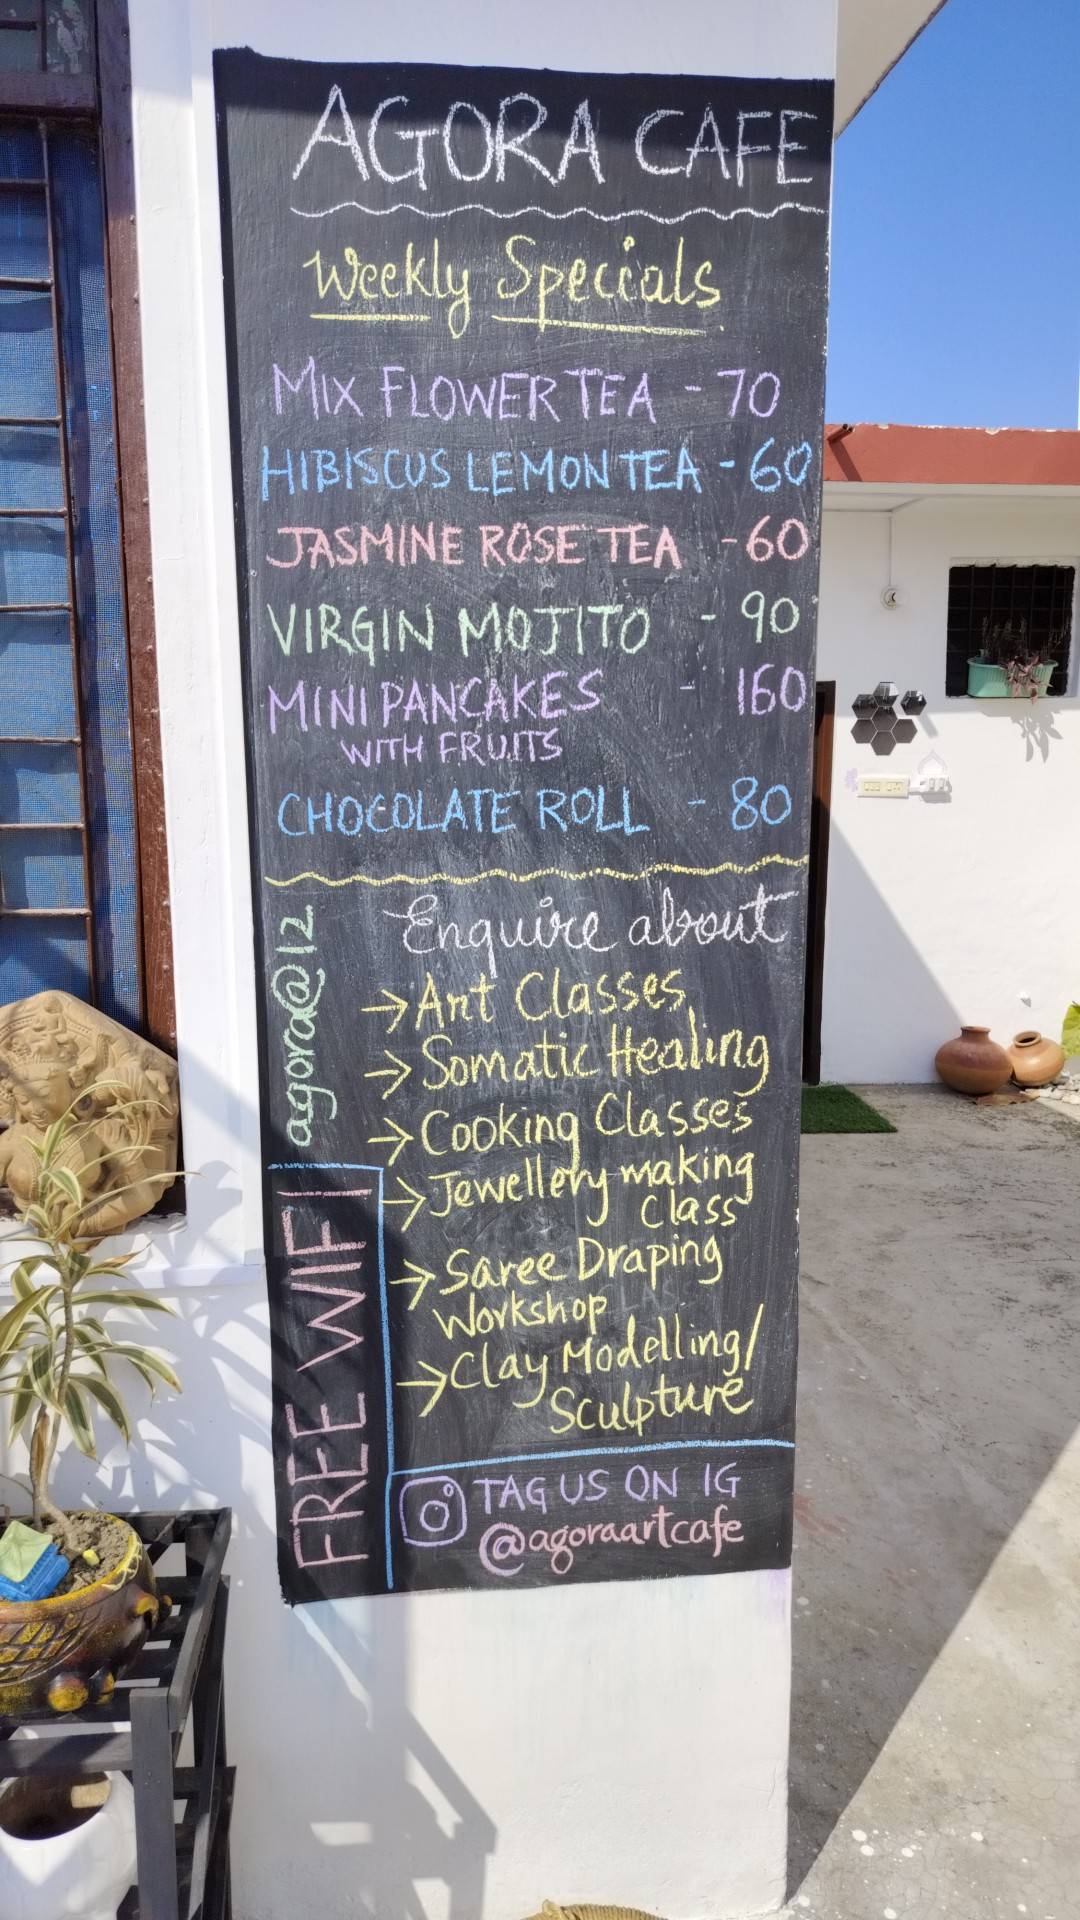 AGORA CAFE
Weekly Specials
MIX FLOWER TEA - 70
HIBISCUS LEMON TEA - 60
JASMINE ROSE TEA - 60
VIRGIN MOJITO - 90
MINI PANCAKES - 160
WITH FRUITS
CHOCOLATE ROLL - 80
Enquire about
→ Art Classes
→ Somatic Healing
→ Cooking Classes
→ Jewellery making
Class
→ Saree Draping
Workshop
→ Clay Modelling/
Sculpture
agora@12
FREE WIFI
TAG US ON IG
@agoraartcafe